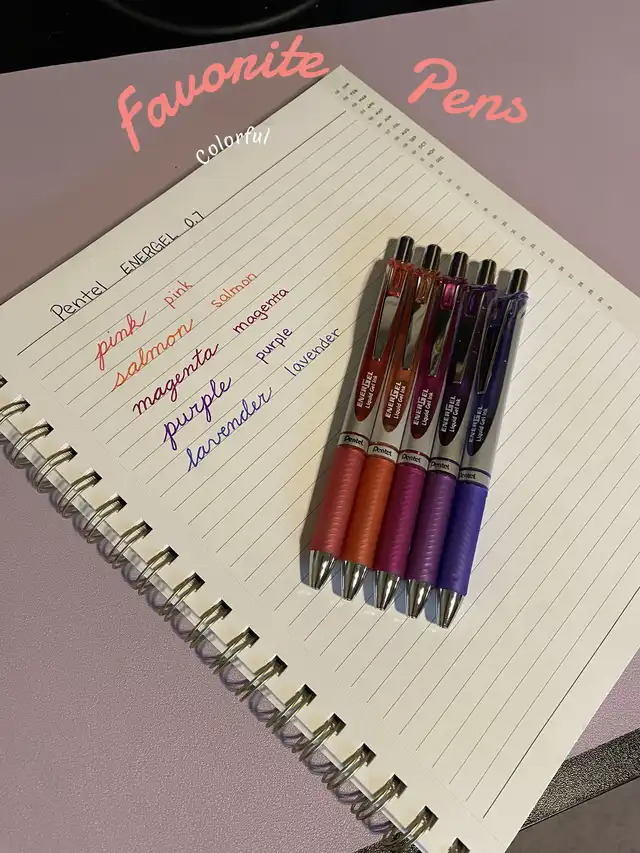 Favorite Pens
Colorful
Pentel ENERGEL 0.7
pink pink
salmon salmon
magenta magenta
purple purple
lavender lavender
ENERGEL
Liquid Gel Ink
Pentel
ENERGEL
Liquid Gel Ink
Pentel
ENERGEL
Liquid Gel Ink
Pentel
ENERGEL
Liquid Gel Ink
Pentel
ENERGEL
Liquid Gel Ink
Pentel